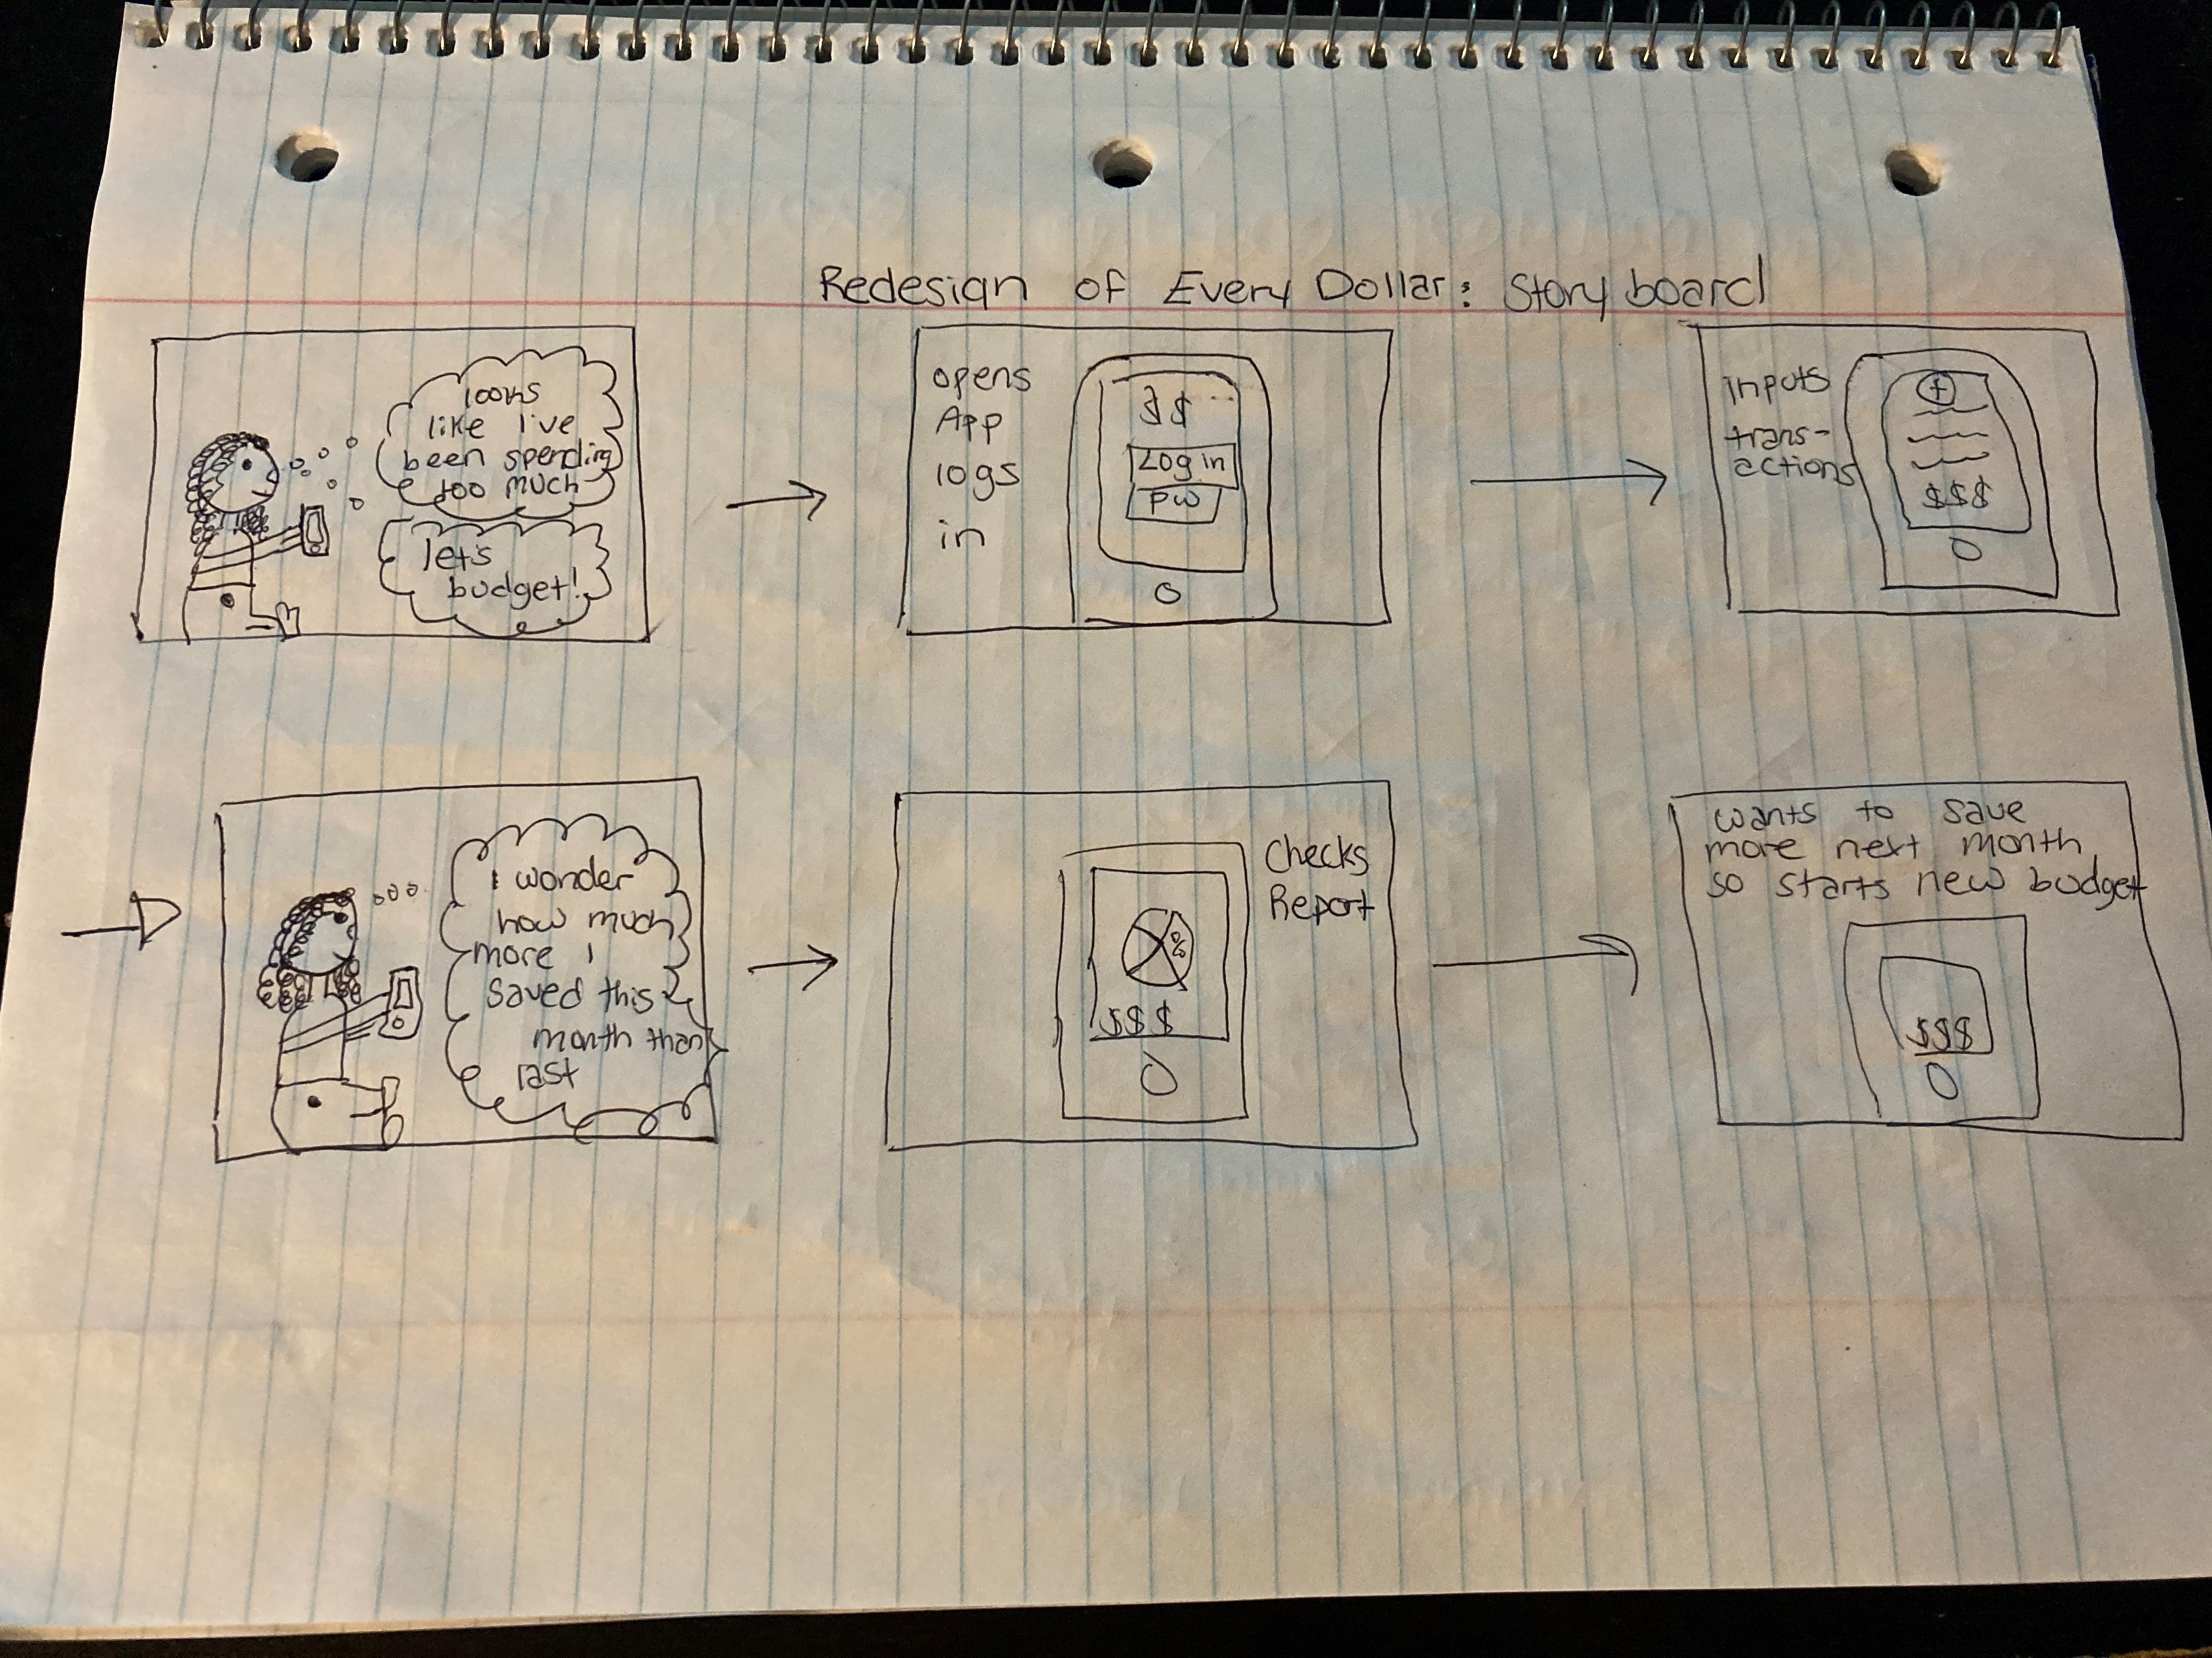 Redesign of Every Dollar: Storyboard
looks
like i've
been spending
too much
let's
budget!
opens
App
logs
in
$$
Log in
PW
inputs
trans-
actions
+
$$$
I wonder
how much
more I
saved this
month than
last
Checks
Report
%
$$$
wants to save
more next month,
so starts new budget
$$$